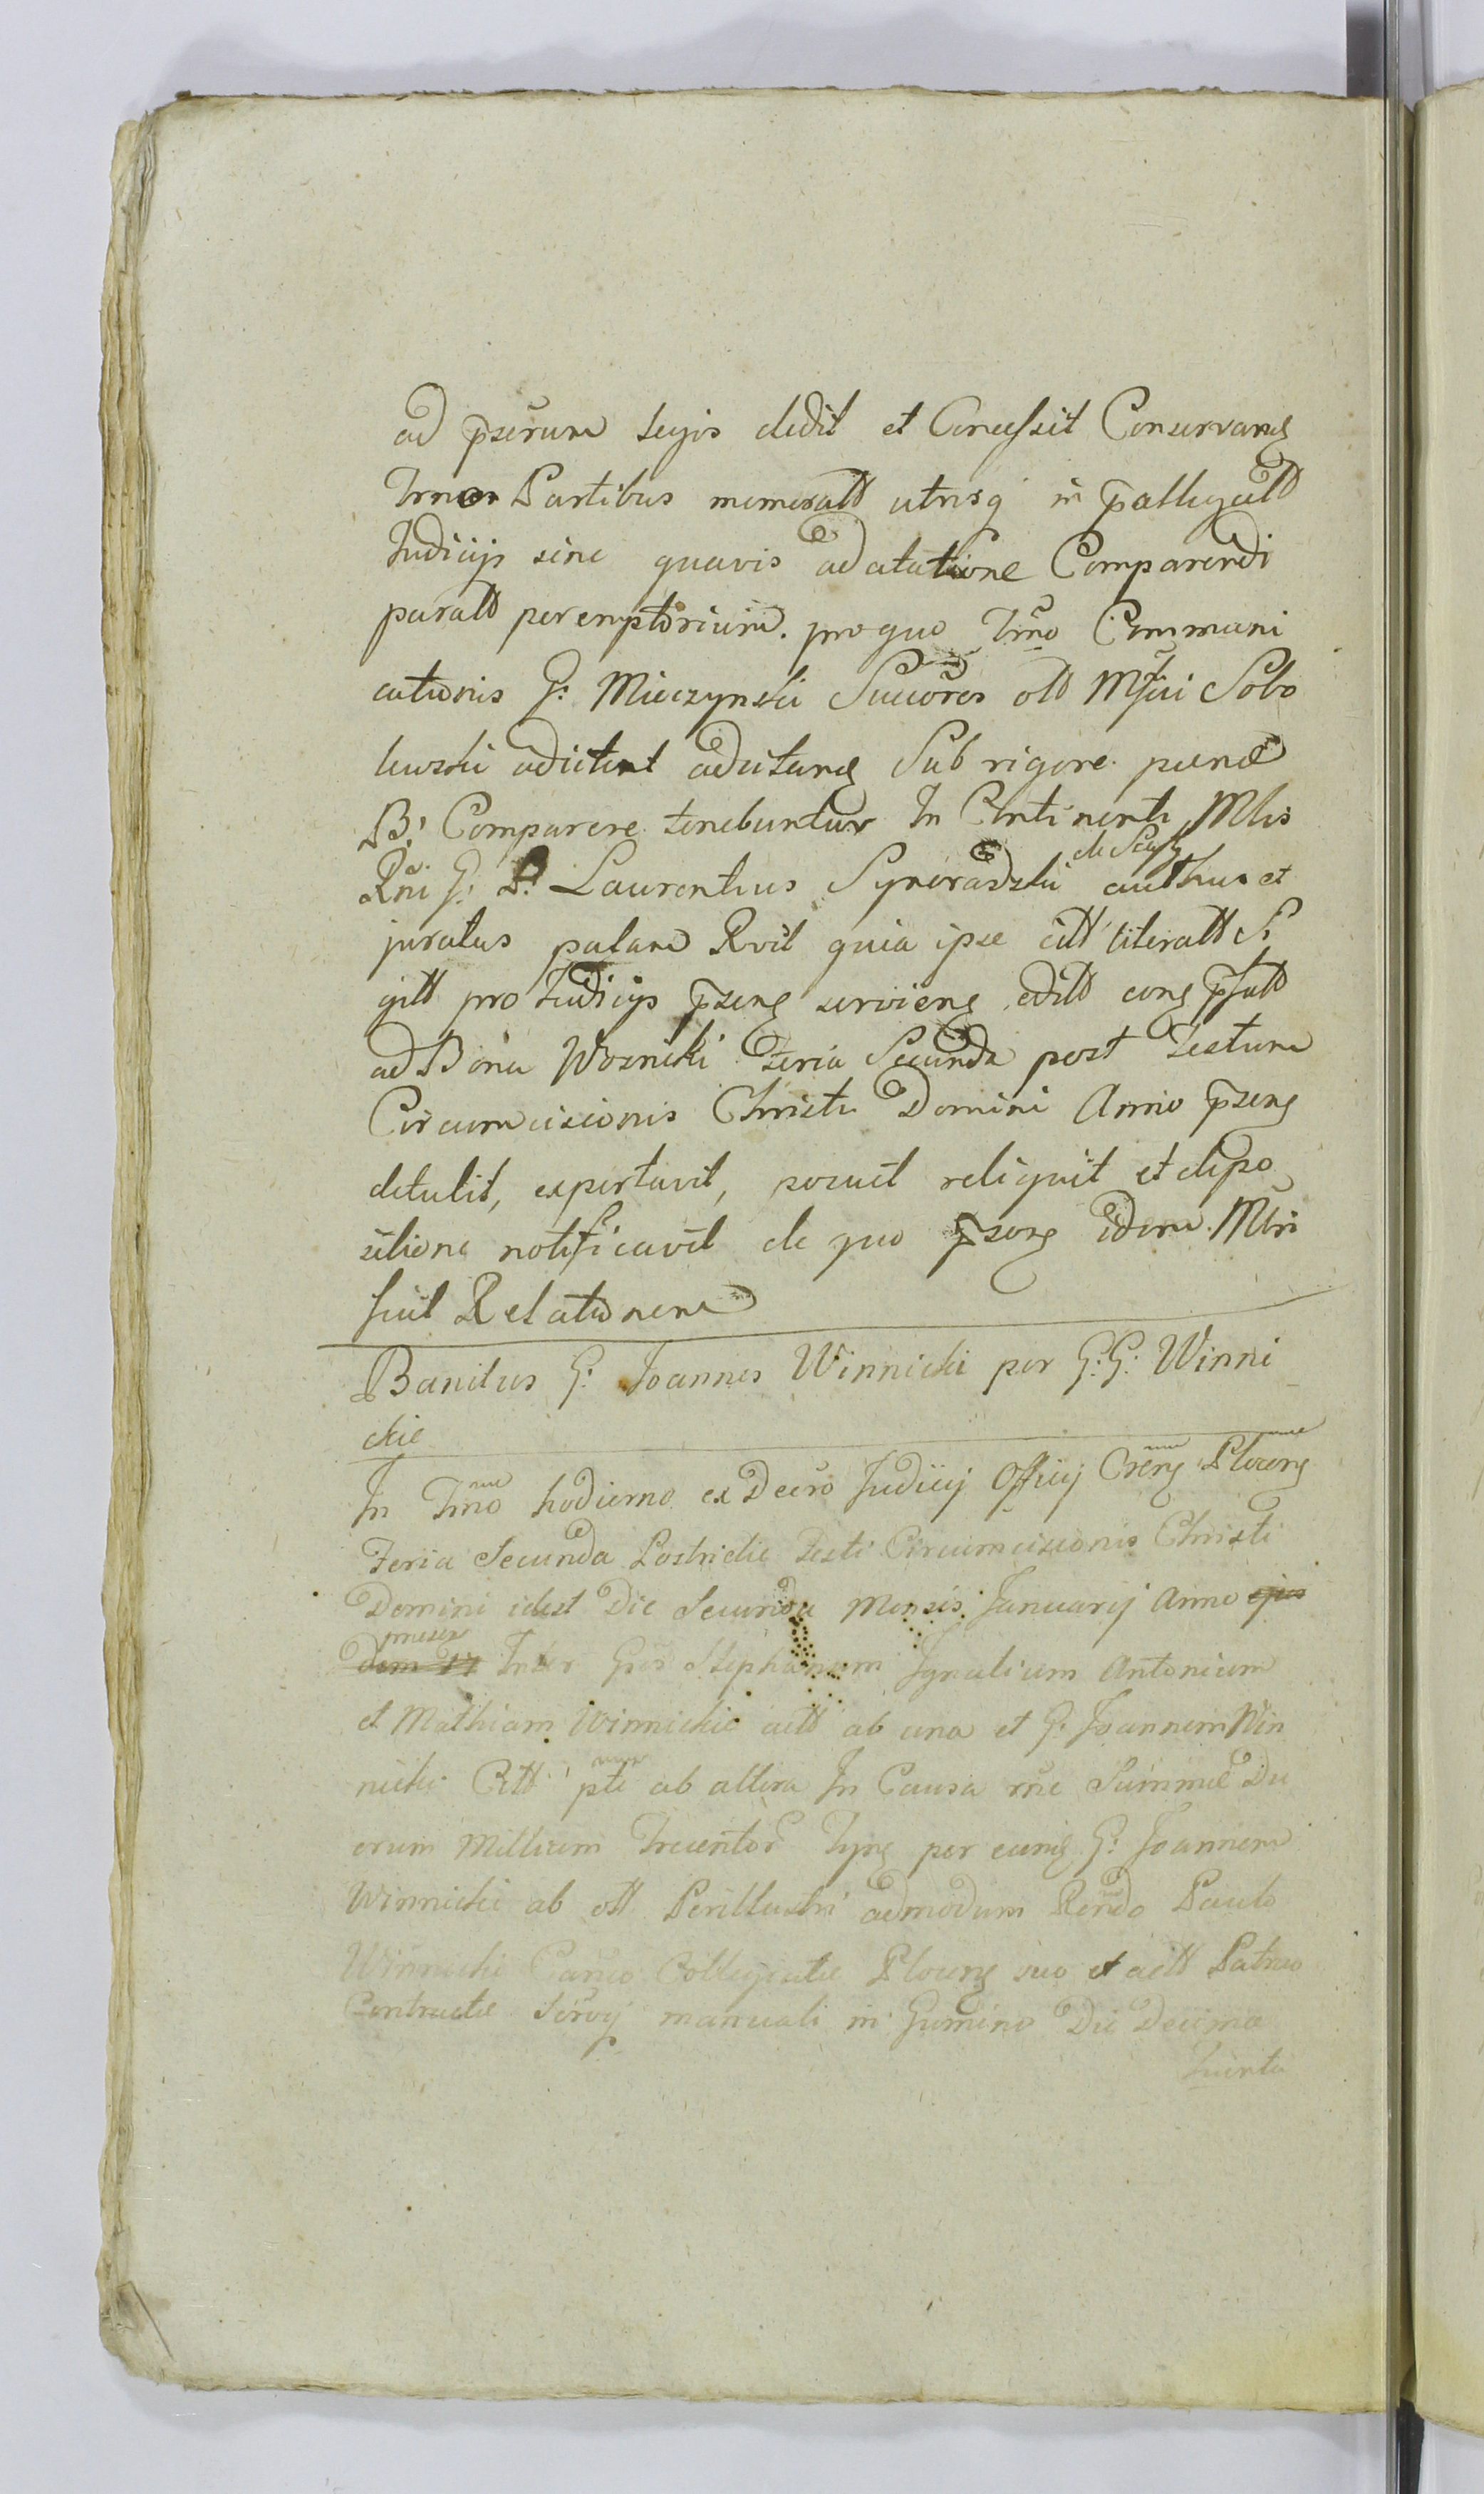 ad pserum legis dedit et Concessit Conservang
Trnos Partibus memoratt utrisq in pallegatt
Judicijs sine quavis adcitatione Comparendi
paratt peremptorium. pro quo Trno Communi
cationis G: Mieczynski Succores olt Mfici Sobo
lewski adcitent adcitang Sub rigore penæ
B: Comparere tenebuntur In Continenti Mlis
Rni G: Laurentius Syneradzki de Scyt authus et
juratus palam Rvit quia ipse citt literatt Si
gitt pro Judicijs pseng servieng editt cong pfatt
ad Bona Woznicki Feria Secunda post Festum
Circumcisionis Christi Domini Anno pseng
detulit, exportavit, posuit reliquit et depo
sitione notificavit de quo pseng idem Mtri
fecit Relationem
Banitus G: Joannes Winnicki per G:G: Winni
ckie
In Trno hodierno ex Decro Judicij Officij Crens Plocens
Feria Secunda Postridie Festi Circumcisionis Christi
Domini idest Die Secunda Mensis Januarij Anno ejus
dem 17 presen Inter Gros Stephanum Ignatium Antonium
et Mathiam Winnickie actt ab una et G: Joannem Win
nicki Citt pte ab altera In Causa rne Summæ Du
orum Millium Trecentor Tyng per eung G: Joannem
Winnicki ab olt Perillustri admodum Rendo Paulo
Winnicki Canco Collegiatæ Ploceng suo et actt Patruo
Contractæ Scroy manuali in Gumino Die Decima
Quinta